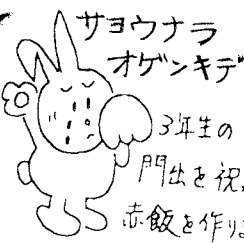 サヨウナラ
オゲンキデ
3年生の
門出を祝、
赤飯を作りま